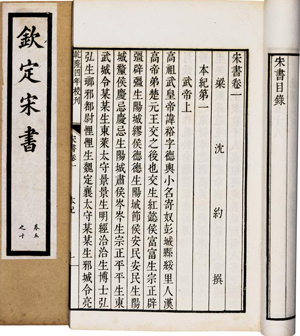 宋書目錄
宋書卷一
梁 沈約 撰
本紀第一
武帝上
高祖武皇帝諱裕字德輿小名寄奴彭城縣綏里人漢
高帝弟楚元王交之後也交生紅懿侯富富生宗正辟
彊辟彊生陽城繆侯德德生陽城節侯安民安民生陽
城釐侯慶忌慶忌生陽城肅侯岑岑生宗正平平生東
武城令某某生東萊太守景景生明經洽洽生博士弘
弘生瑯邪都尉悝悝生魏定襄太守某某生邪城令亮
乾隆四年校刊 宋書卷一 本紀 一
欽定宋書
卷五
之十